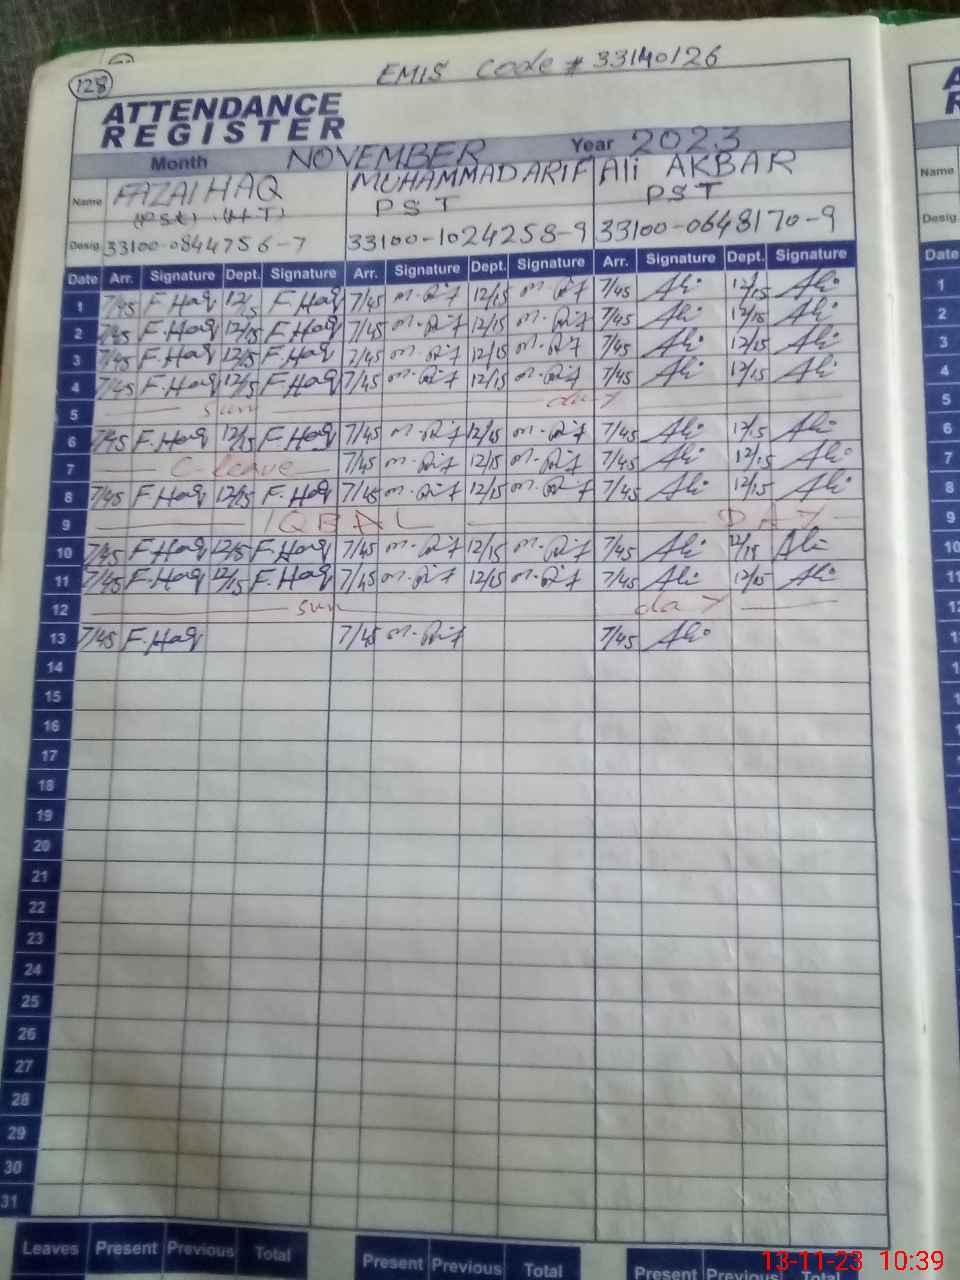 128
EMIS Code # 33140126
ATTENDANCE
REGISTER
Month NOVEMBER Year 2023
Name FAZAL HAQ MUHAMMAD ARIF Ali AKBAR
(PST) (H.T) PST PST
Desig. 33100-0844756-7 33100-1024258-9 33100-0648170-9
Date Arr. Signature Dept. Signature Arr. Signature Dept. Signature Arr. Signature Dept. Signature
1 7/45 F.Haq 12/15 F.Haq 7/45 M.Arif 12/15 M.Arif 7/45 Ali 12/15 Ali
2 7/45 F.Haq 12/15 F.Haq 7/45 M.Arif 12/15 M.Arif 7/45 Ali 12/15 Ali
3 7/45 F.Haq 12/15 F.Haq 7/45 M.Arif 12/15 M.Arif 7/45 Ali 12/15 Ali
4 7/45 F.Haq 12/15 F.Haq 7/45 M.Arif 12/15 M.Arif 7/45 Ali 12/15 Ali
5 Sun day
6 7/45 F.Haq 12/15 F.Haq 7/45 M.Arif 12/15 M.Arif 7/45 Ali 12/15 Ali
7 C-leave 7/45 M.Arif 12/15 M.Arif 7/45 Ali 12/15 Ali
8 7/45 F.Haq 12/15 F.Haq 7/45 M.Arif 12/15 M.Arif 7/45 Ali 12/15 Ali
9 IQBAL DAY
10 7/45 F.Haq 12/15 F.Haq 7/45 M.Arif 12/15 M.Arif 7/45 Ali 12/15 Ali
11 7/45 F.Haq 12/15 F.Haq 7/45 M.Arif 12/15 M.Arif 7/45 Ali 12/15 Ali
12 Sun day
13 7/45 F.Haq 7/45 M.Arif 7/45 Ali
14
15
16
17
18
19
20
21
22
23
24
25
26
27
28
29
30
31
Leaves Present Previous Total Present Previous Total Present Previous Total
Name
Desig.
Date
1
2
3
4
5
6
7
8
9
10
11
12
13-11-23 10:39